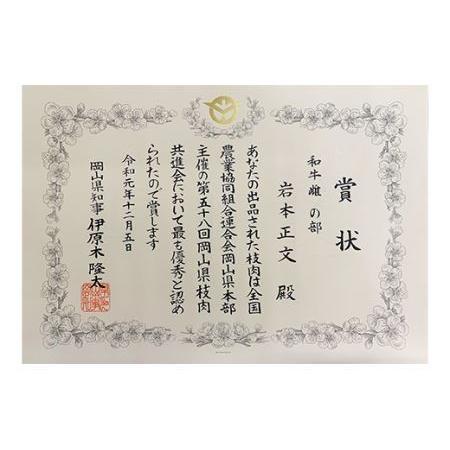 賞状
和牛雌の部
岩本正文殿
あなたの出品された枝肉は全国
農業協同組合連合会岡山県本部
主催の第五十八回岡山県枝肉
共進会において最も優秀と認め
られたので賞します
令和元年十二月五日
岡山県知事 伊原木隆太